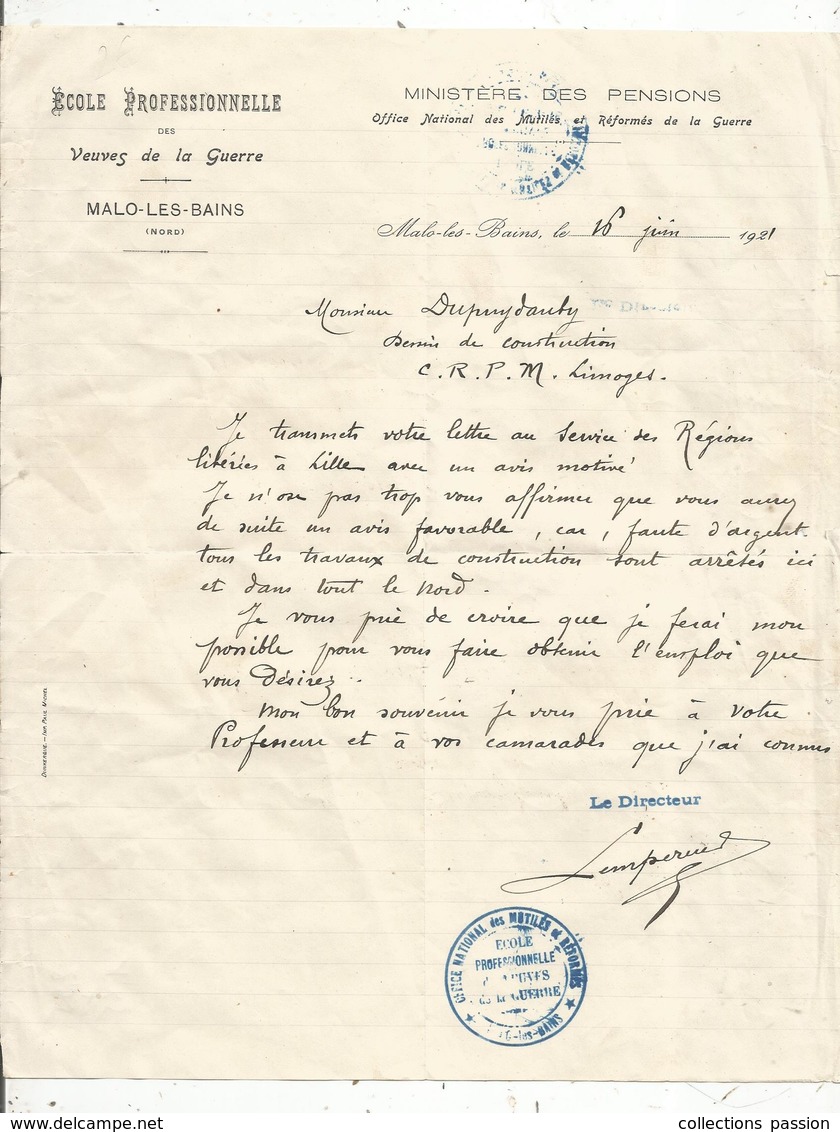 ECOLE PROFESSIONNELLE
DES
Veuves de la Guerre
MALO-LES-BAINS
(NORD)
MINISTÈRE DES PENSIONS
Office National des Mutilés et Réformés de la Guerre
Malo-les-Bains, le 16 juin 1921
Monsieur Dupuydauby
Dessin de construction
C. R. P. M. Limoges.
Je transmets votre lettre au Service des Régions
libérées à Lille avec un avis motivé
Je n'ose pas trop vous affirmer que vous aurez
de suite un avis favorable, car, faute d'argent
tous les travaux de construction sont arrêtés ici
et dans tout le Nord.
Je vous prie de croire que je ferai mon
possible pour vous faire obtenir l'emploi que
vous Désirez.
Mon bon souvenir je vous prie à votre
Professeur et à vos camarades que j'ai connus
Le Directeur
DUNKERQUE. — IMP. PAUL MICHEL
OFFICE NATIONAL des MUTILÉS et RÉFORMÉS
ECOLE
PROFESSIONNELLE
de la GUERRE
-les-BAINS
collections passion